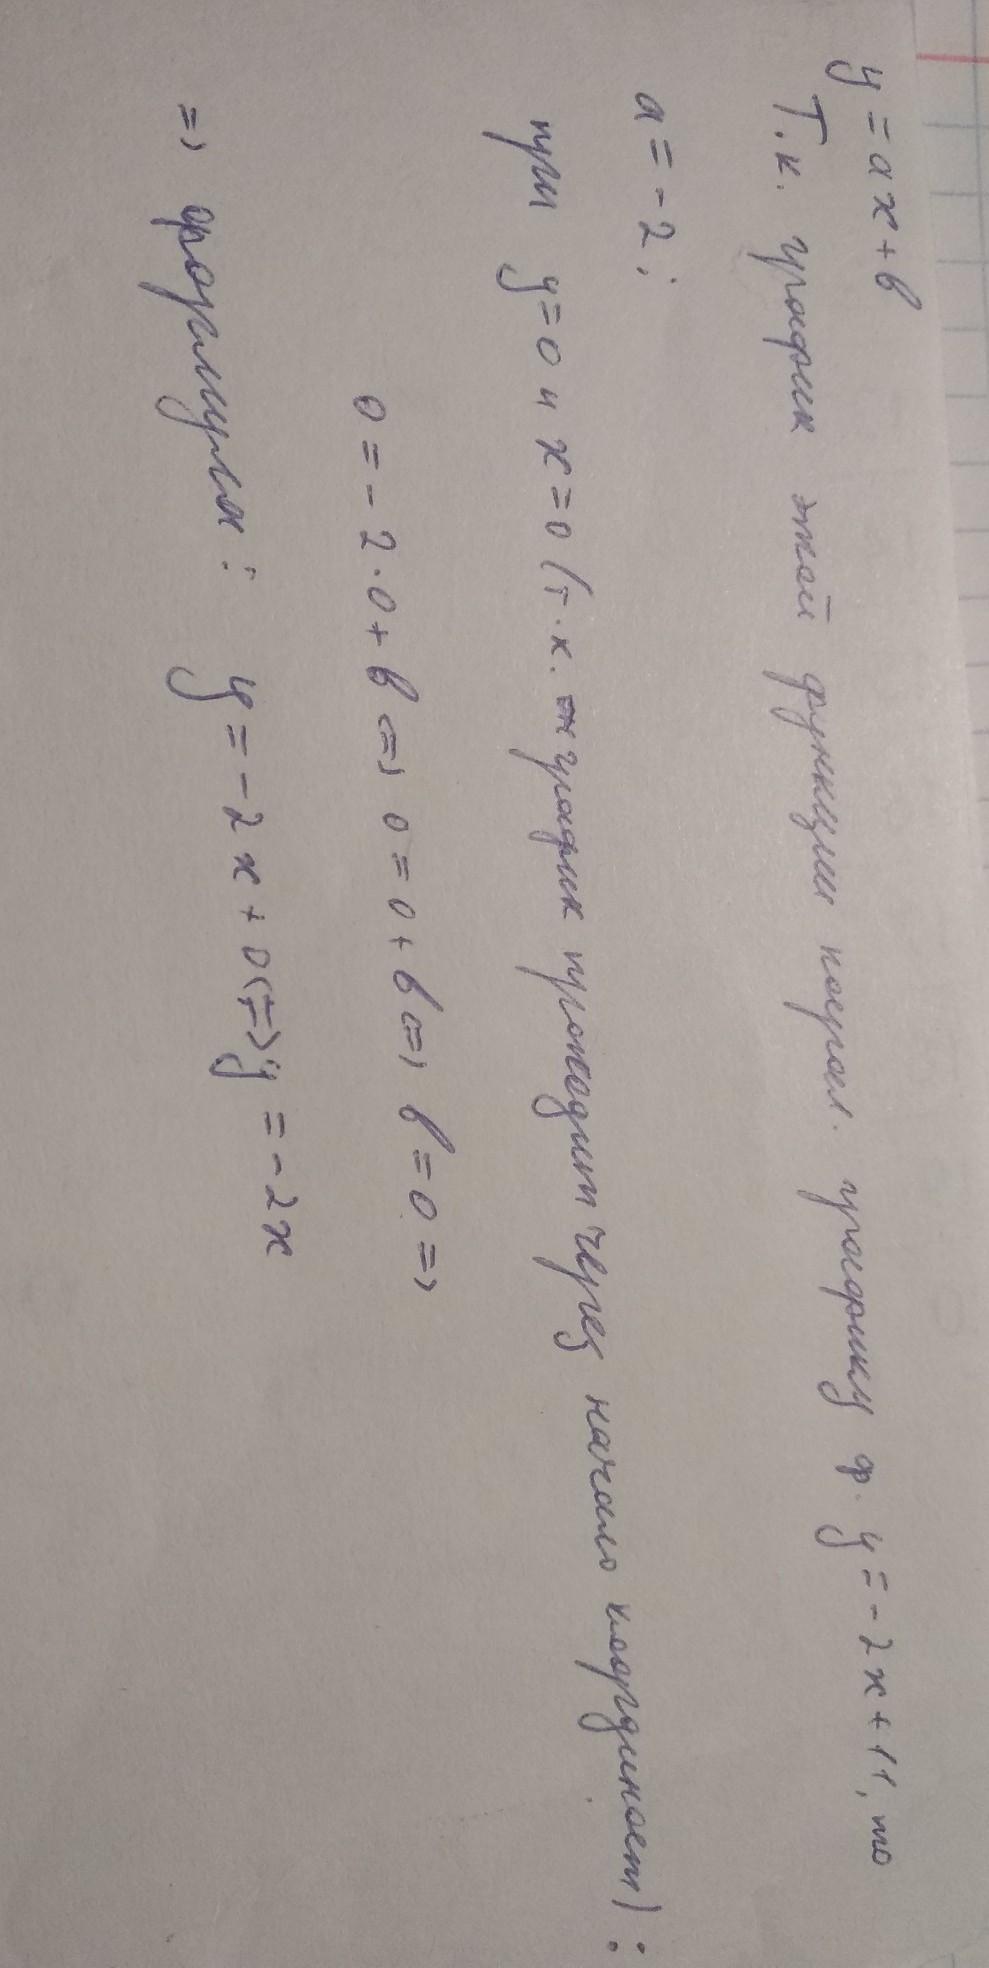 y = ax + b
Т.к. график этой функции паралл. графику ф. y = -2x + 11, то
a = -2;
при y = 0 и x = 0 (т.к. график проходит через начало координат):
0 = -2·0 + b <=> 0 = 0 + b <=> b = 0 =>
=> формула: y = -2x + 0 <=> y = -2x